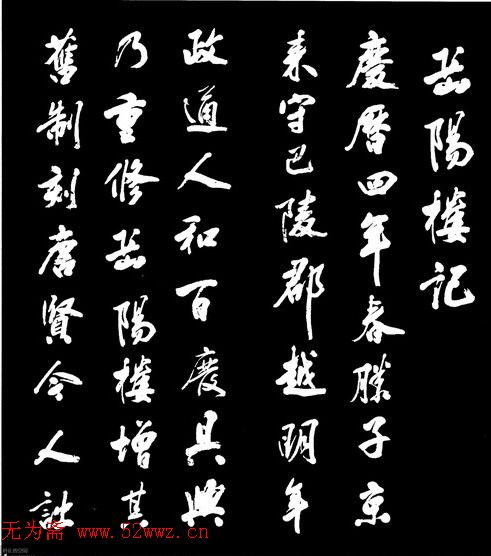 岳陽樓記
慶曆四年春滕子京
来守巴陵郡越明年
政通人和百度具興
乃重修岳陽樓增其
舊制刻唐賢今人詩
无为斋 www.52wwz.cn